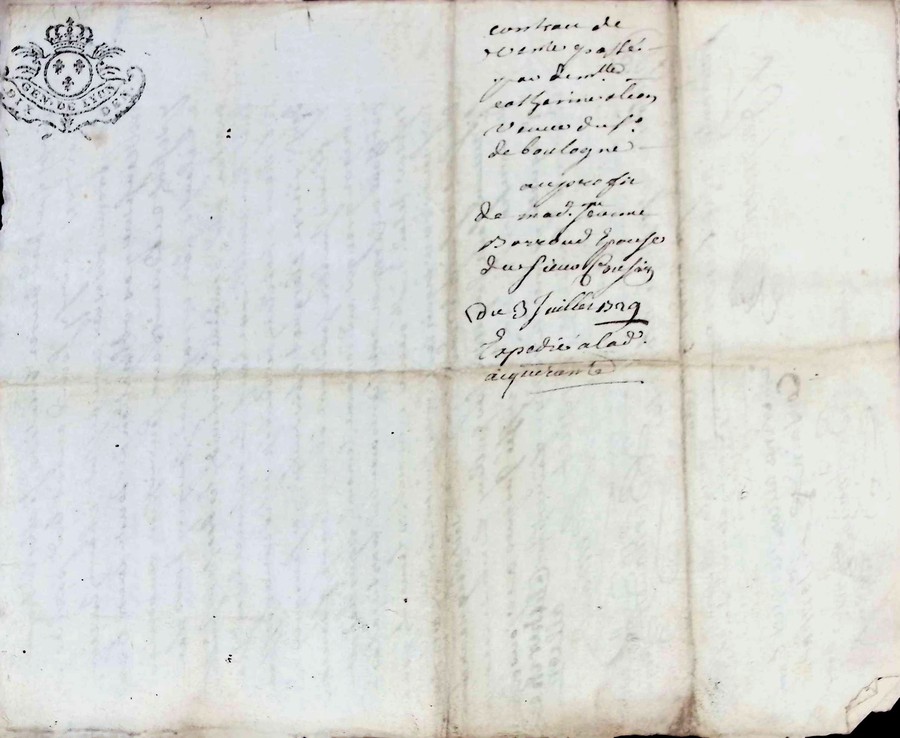 GEN. DE LYON
DIX DEN.
contract de
vente passé
par dem.lle
catherine
veuve du Sr.
de boulogne
au profit
de mad. Jeanne
Barroud Epouse
du sieur
du 3 Juillet 1729
Expedié a lad.
acquerante